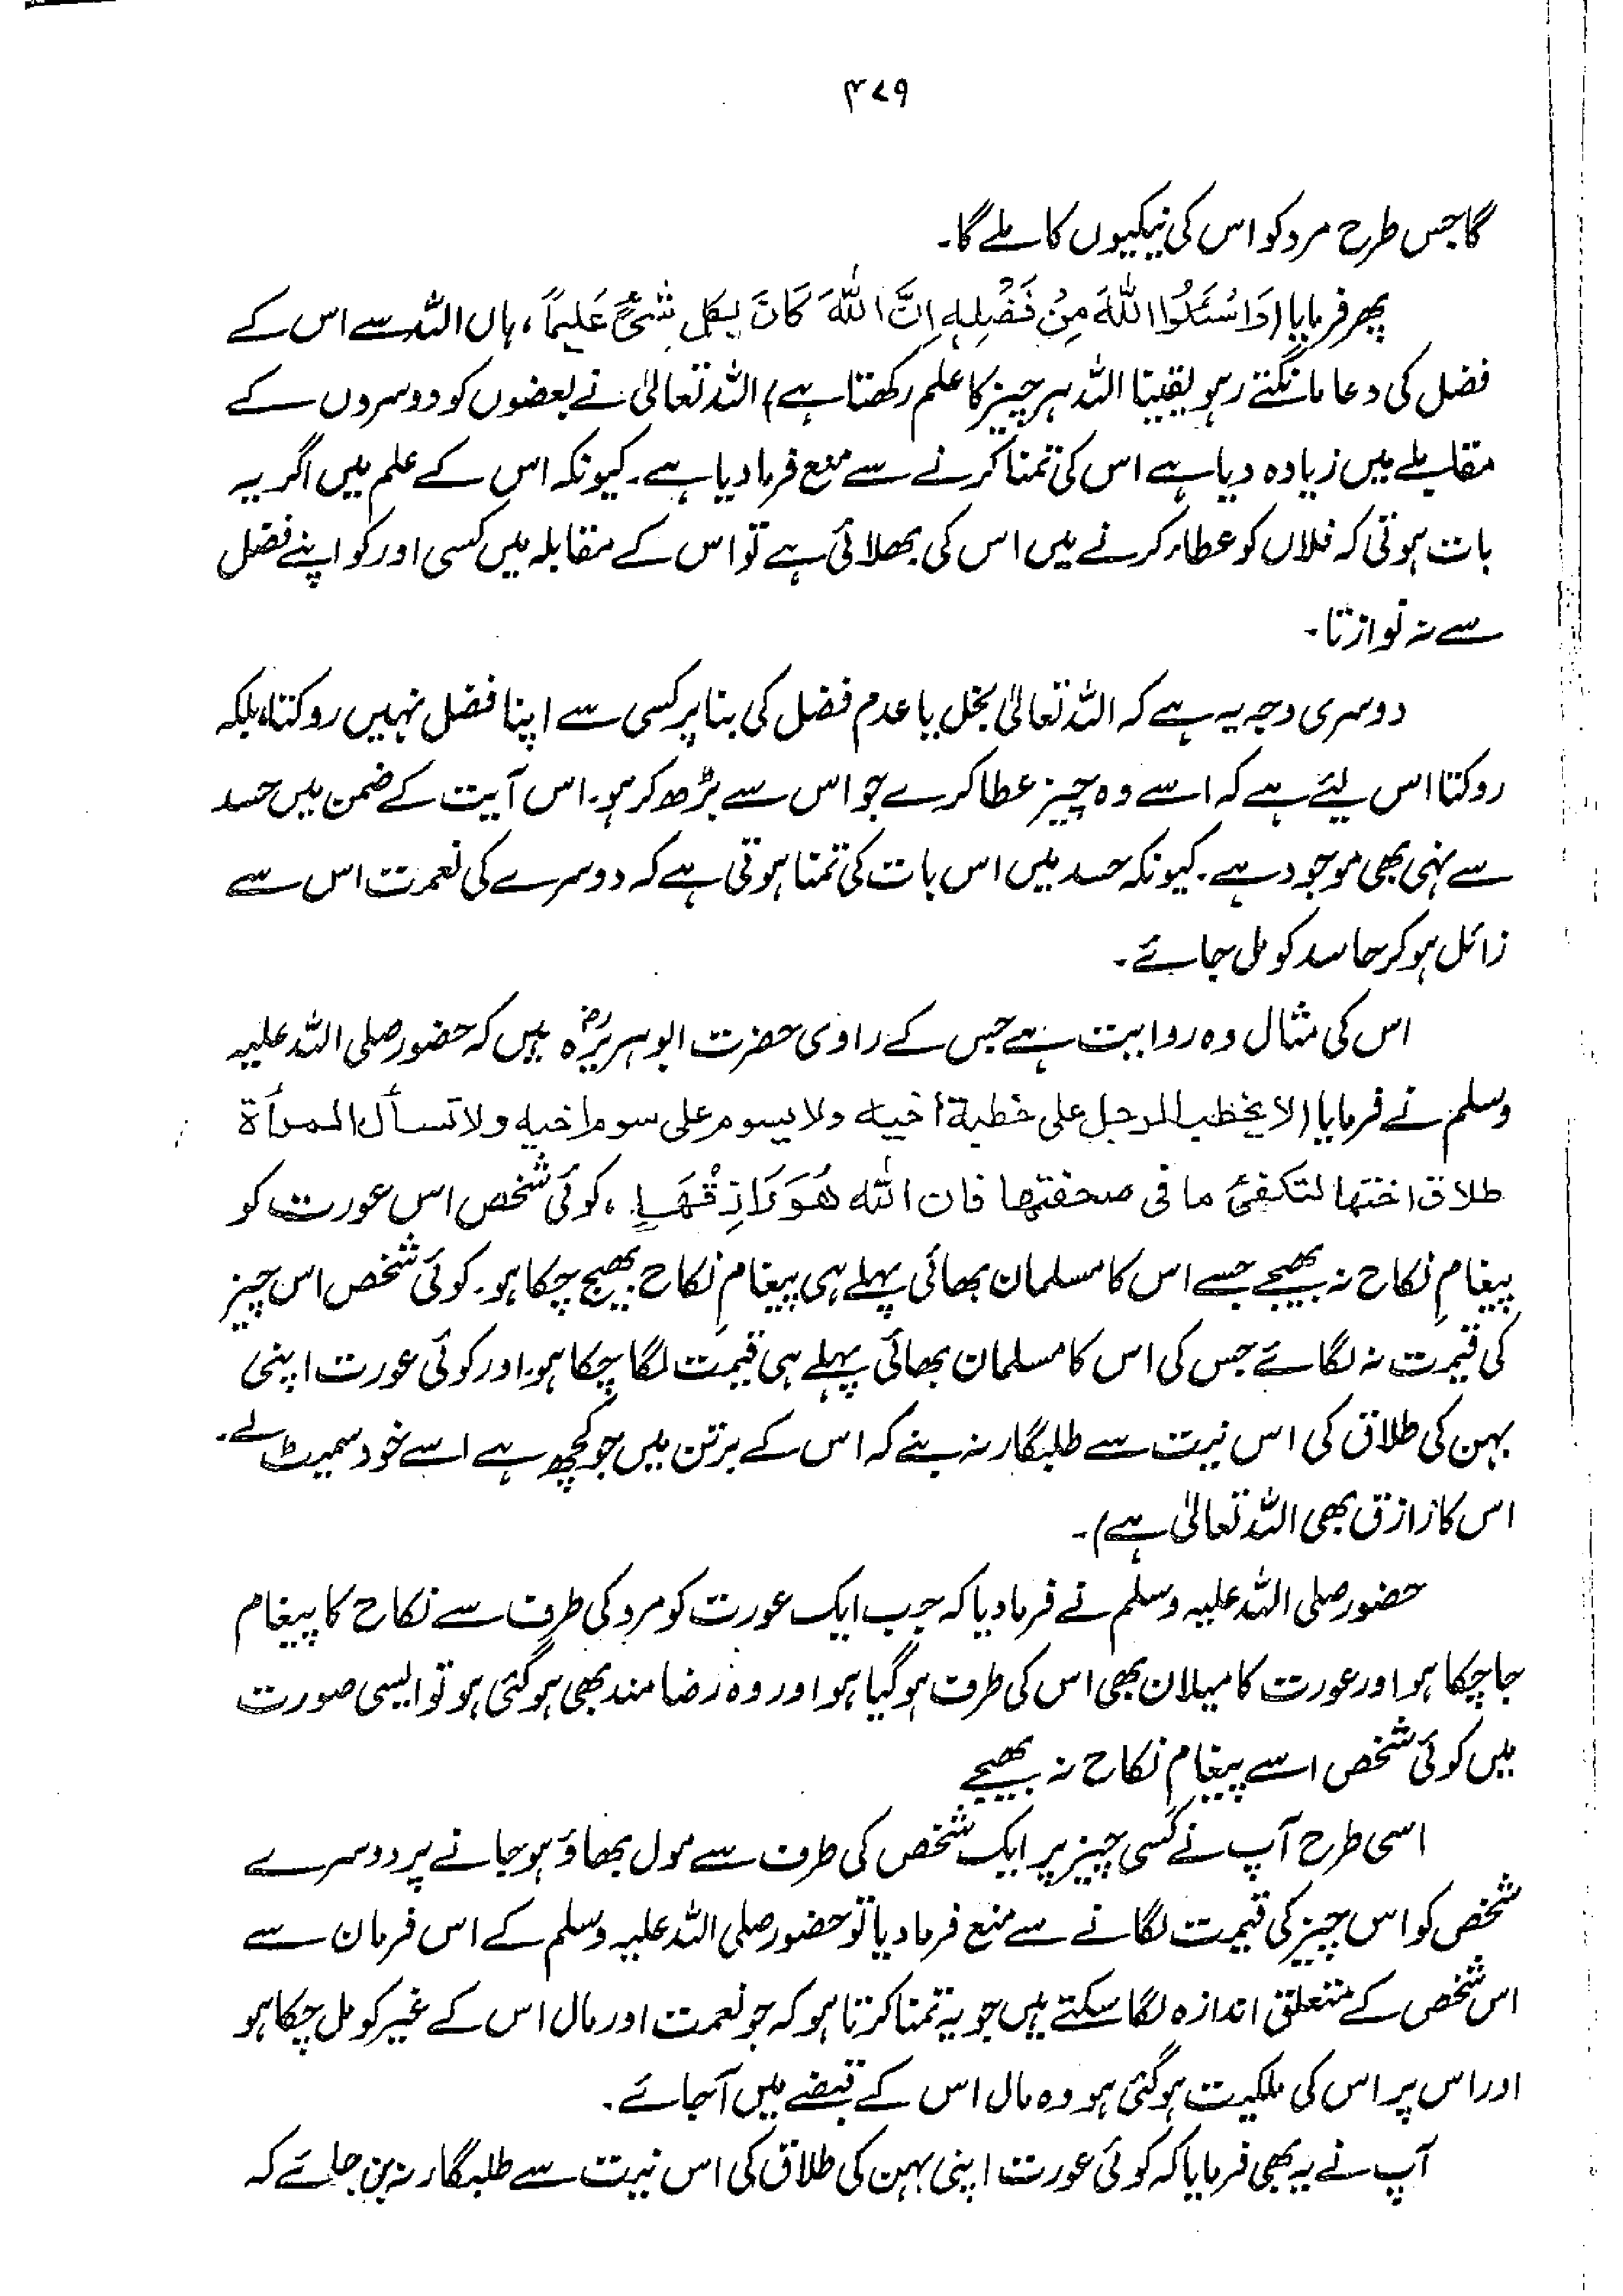 ۳۷۹
گا جس طرح مرد کو اس کی نیکیوں کا ملے گا۔
پھر فرمایا (وَاسْئَلُوا اللّٰهَ مِنْ فَضْلِهٖ اِنَّ اللّٰهَ كَانَ بِكُلِّ شَيْءٍ عَلِيمًا، ہاں اللہ سے اس کے
فضل کی دعا مانگتے رہو یقینا اللہ ہر چیز کا علم رکھتا ہے) اللہ تعالیٰ نے بعضوں کو دوسروں کے
مقابلے میں زیادہ دیا ہے اس کی تمنا کرنے سے منع فرما دیا ہے۔ کیونکہ اس کے علم میں اگر یہ
بات ہوتی کہ فلاں کو عطاء کرنے میں اس کی بھلائی ہے تو اس کے مقابلہ میں کسی اور کو اپنے فضل
سے نہ نوازتا۔
دوسری وجہ یہ ہے کہ اللہ تعالیٰ بخل یا عدم فضل کی بنا پر کسی سے اپنا فضل نہیں روکتا، بلکہ
روکتا اس لیئے ہے کہ اسے وہ چیز عطا کرے جو اس سے بڑھ کر ہو۔ اس آیت کے ضمن میں حسد
سے نہی بھی موجود ہے۔ کیونکہ حسد میں اس بات کی تمنا ہوتی ہے کہ دوسرے کی نعمت اس سے
زائل ہو کر حاسد کو مل جائے۔
اس کی مثال وہ روایت ہے جس کے راوی حضرت ابوہریرہؓ ہیں کہ حضور صلی اللہ علیہ
وسلم نے فرمایا (لا يخطب الرجل على خطبة أخيه ولا يسوم على سوم اخيه ولا تسأل المرأة
طلاق اختها لتكفئ ما فى صحفتها فان الله هُوَ رَازِقُهَا، کوئی شخص اس عورت کو
پیغامِ نکاح نہ بھیجے جسے اس کا مسلمان بھائی پہلے ہی پیغامِ نکاح بھیج چکا ہو۔ کوئی شخص اس چیز
کی قیمت نہ لگائے جس کی اس کا مسلمان بھائی پہلے ہی قیمت لگا چکا ہو۔ اور کوئی عورت اپنی
بہن کی طلاق کی اس نیت سے طلبگار نہ بنے کہ اس کے برتن میں جو کچھ ہے اسے خود سمیٹ لے۔
اس کا رازق بھی اللہ تعالیٰ ہے)۔
حضور صلی اللہ علیہ وسلم نے فرما دیا کہ جب ایک عورت کو مرد کی طرف سے نکاح کا پیغام
جا چکا ہو اور عورت کا میلان بھی اس کی طرف ہو گیا ہو اور وہ رضامند بھی ہو گئی ہو تو ایسی صورت
میں کوئی شخص اسے پیغامِ نکاح نہ بھیجے
اسی طرح آپ نے کسی چیز پر ایک شخص کی طرف سے مول بھاؤ ہو جانے پر دوسرے
شخص کو اس چیز کی قیمت لگانے سے منع فرما دیا تو حضور صلی اللہ علیہ وسلم کے اس فرمان سے
اس شخص کے متعلق اندازہ لگا سکتے ہیں جو یہ تمنا کرتا ہو کہ جو نعمت اور مال اس کے غیر کو مل چکا ہو
اور اس پر اس کی ملکیت ہو گئی ہو وہ مال اس کے قبضے میں آ جائے۔
آپ نے یہ بھی فرمایا کہ کوئی عورت اپنی بہن کی طلاق کی اس نیت سے طلبگار نہ بن جائے کہ